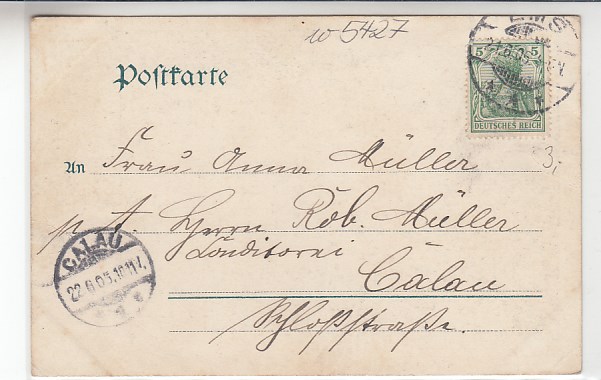 w 5427
EMS
5 5
DEUTSCHES REICH
Postkarte
3,-
An Frau Anna Müller
p. A. Herrn Rob. Müller
Conditorei
Calau
Schloßstraße.
CALAU
22.6.05.10-11V.